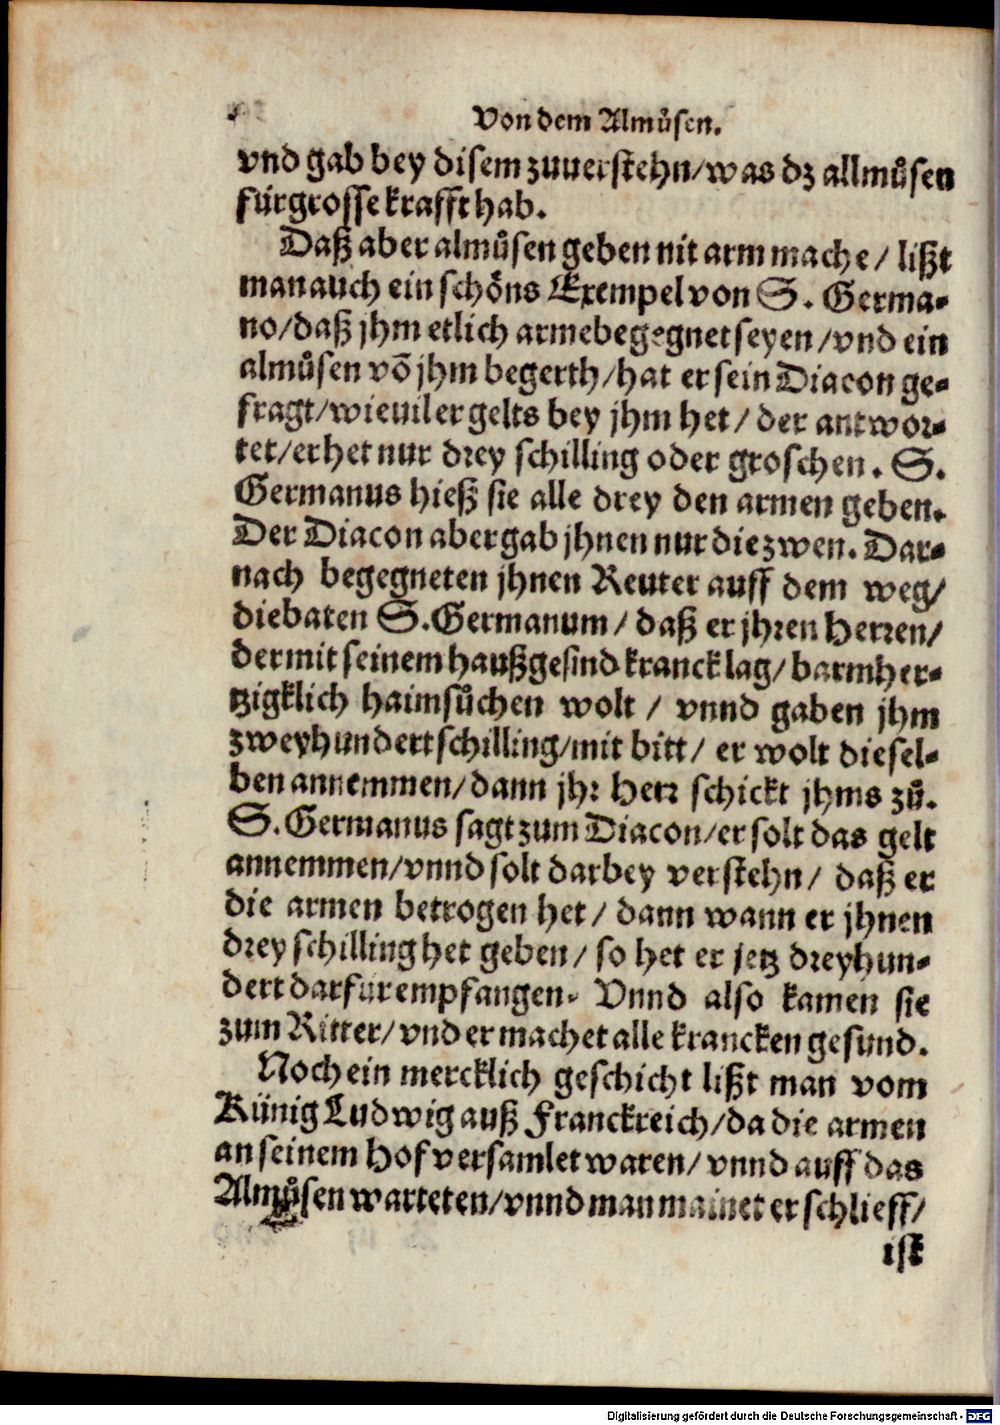 Von dem Almůsen.
vnd gab bey disem zuuerstehn/was dz allmůsen
für grosse krafft hab.
Daß aber almůsen geben nit arm mache/ lißt
man auch ein schöns Exempel von S. Germa-
no/daß jhm etlich arme begegnet seyen/vnd ein
almůsen võ jhm begerth/hat er sein Diacon ge-
fragt/wieuil er gelts bey jhm het/ der antwor-
tet/er het nur drey schilling oder groschen. S.
Germanus hieß sie alle drey den armen geben.
Der Diacon aber gab jhnen nur die zwen. Dar-
nach begegneten jhnen Reuter auff dem weg/
die baten S. Germanum/ daß er jhren Herren/
der mit seinem haußgesind kranck lag/ barmher-
tzigklich haimsůchen wolt / vnnd gaben jhm
zweyhundert schilling/mit bitt/ er wolt diesel-
ben annemmen/dann jhr Herr schickt jhms zů.
S. Germanus sagt zum Diacon/er solt das gelt
annemmen/vnnd solt darbey verstehn/ daß er
die armen betrogen het/ dann wann er jhnen
drey schilling het geben/ so het er jetz dreyhun-
dert darfur empfangen. Vnnd also kamen sie
zum Ritter/ vnd er machet alle krancken gesund.
Noch ein mercklich geschicht lißt man vom
Künig Ludwig auß Franckreich/da die armen
an seinem Hof versamlet waren/ vnnd auff das
Almůsen warteten/vnnd man mainet er schlieff/
ist
Digitalisierung gefördert durch die Deutsche Forschungsgemeinschaft - DFG